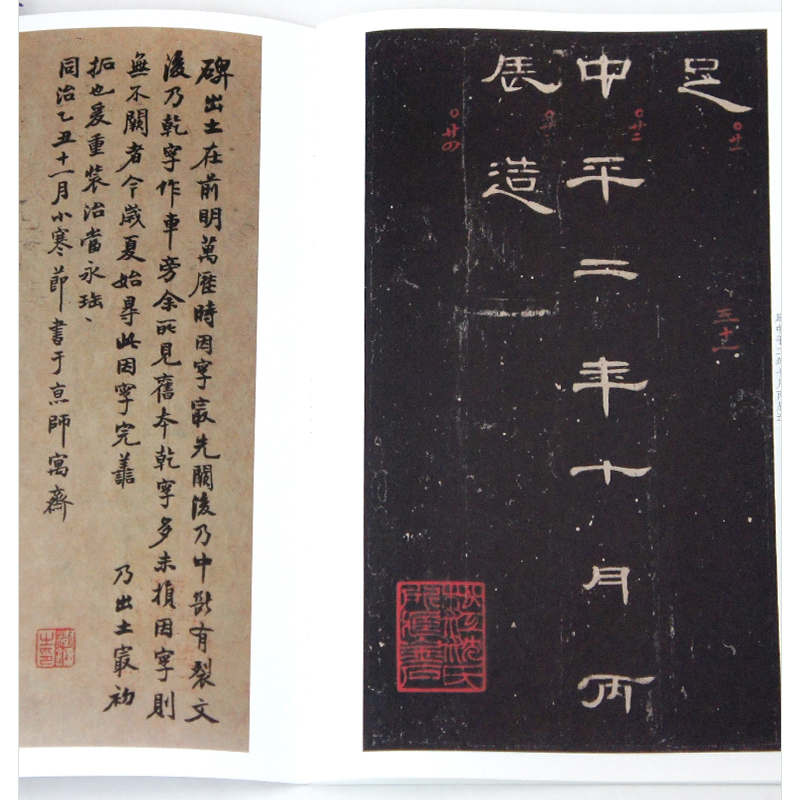 足
中平二年十月丙
辰造
廿一
廿二
廿四
三十一
碑出土在前明萬歷時因字最先闕後乃中斷有裂文
後乃乾字作車旁余所見舊本乾字多未損因字則
無不闕者今歲夏始尋此因字完善 乃出土最初
拓也爰重裝治當永珤、
同治乙丑十一月小寒節書于京師寓齋